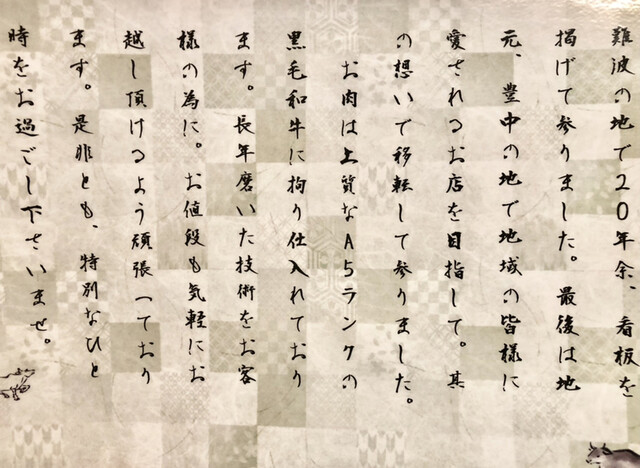 難波の地で20年余、看板を
掲げて参りました。最後は地
元、豊中の地で地域の皆様に
愛されるお店を目指して。其
の想いで移転して参りました。
お肉は上質なA5ランクの
黒毛和牛に拘り仕入れており
ます。長年磨いた技術をお客
様の為に。お値段も気軽にお
越し頂けるよう頑張っており
ます。是非とも、特別なひと
時をお過ごし下さいませ。